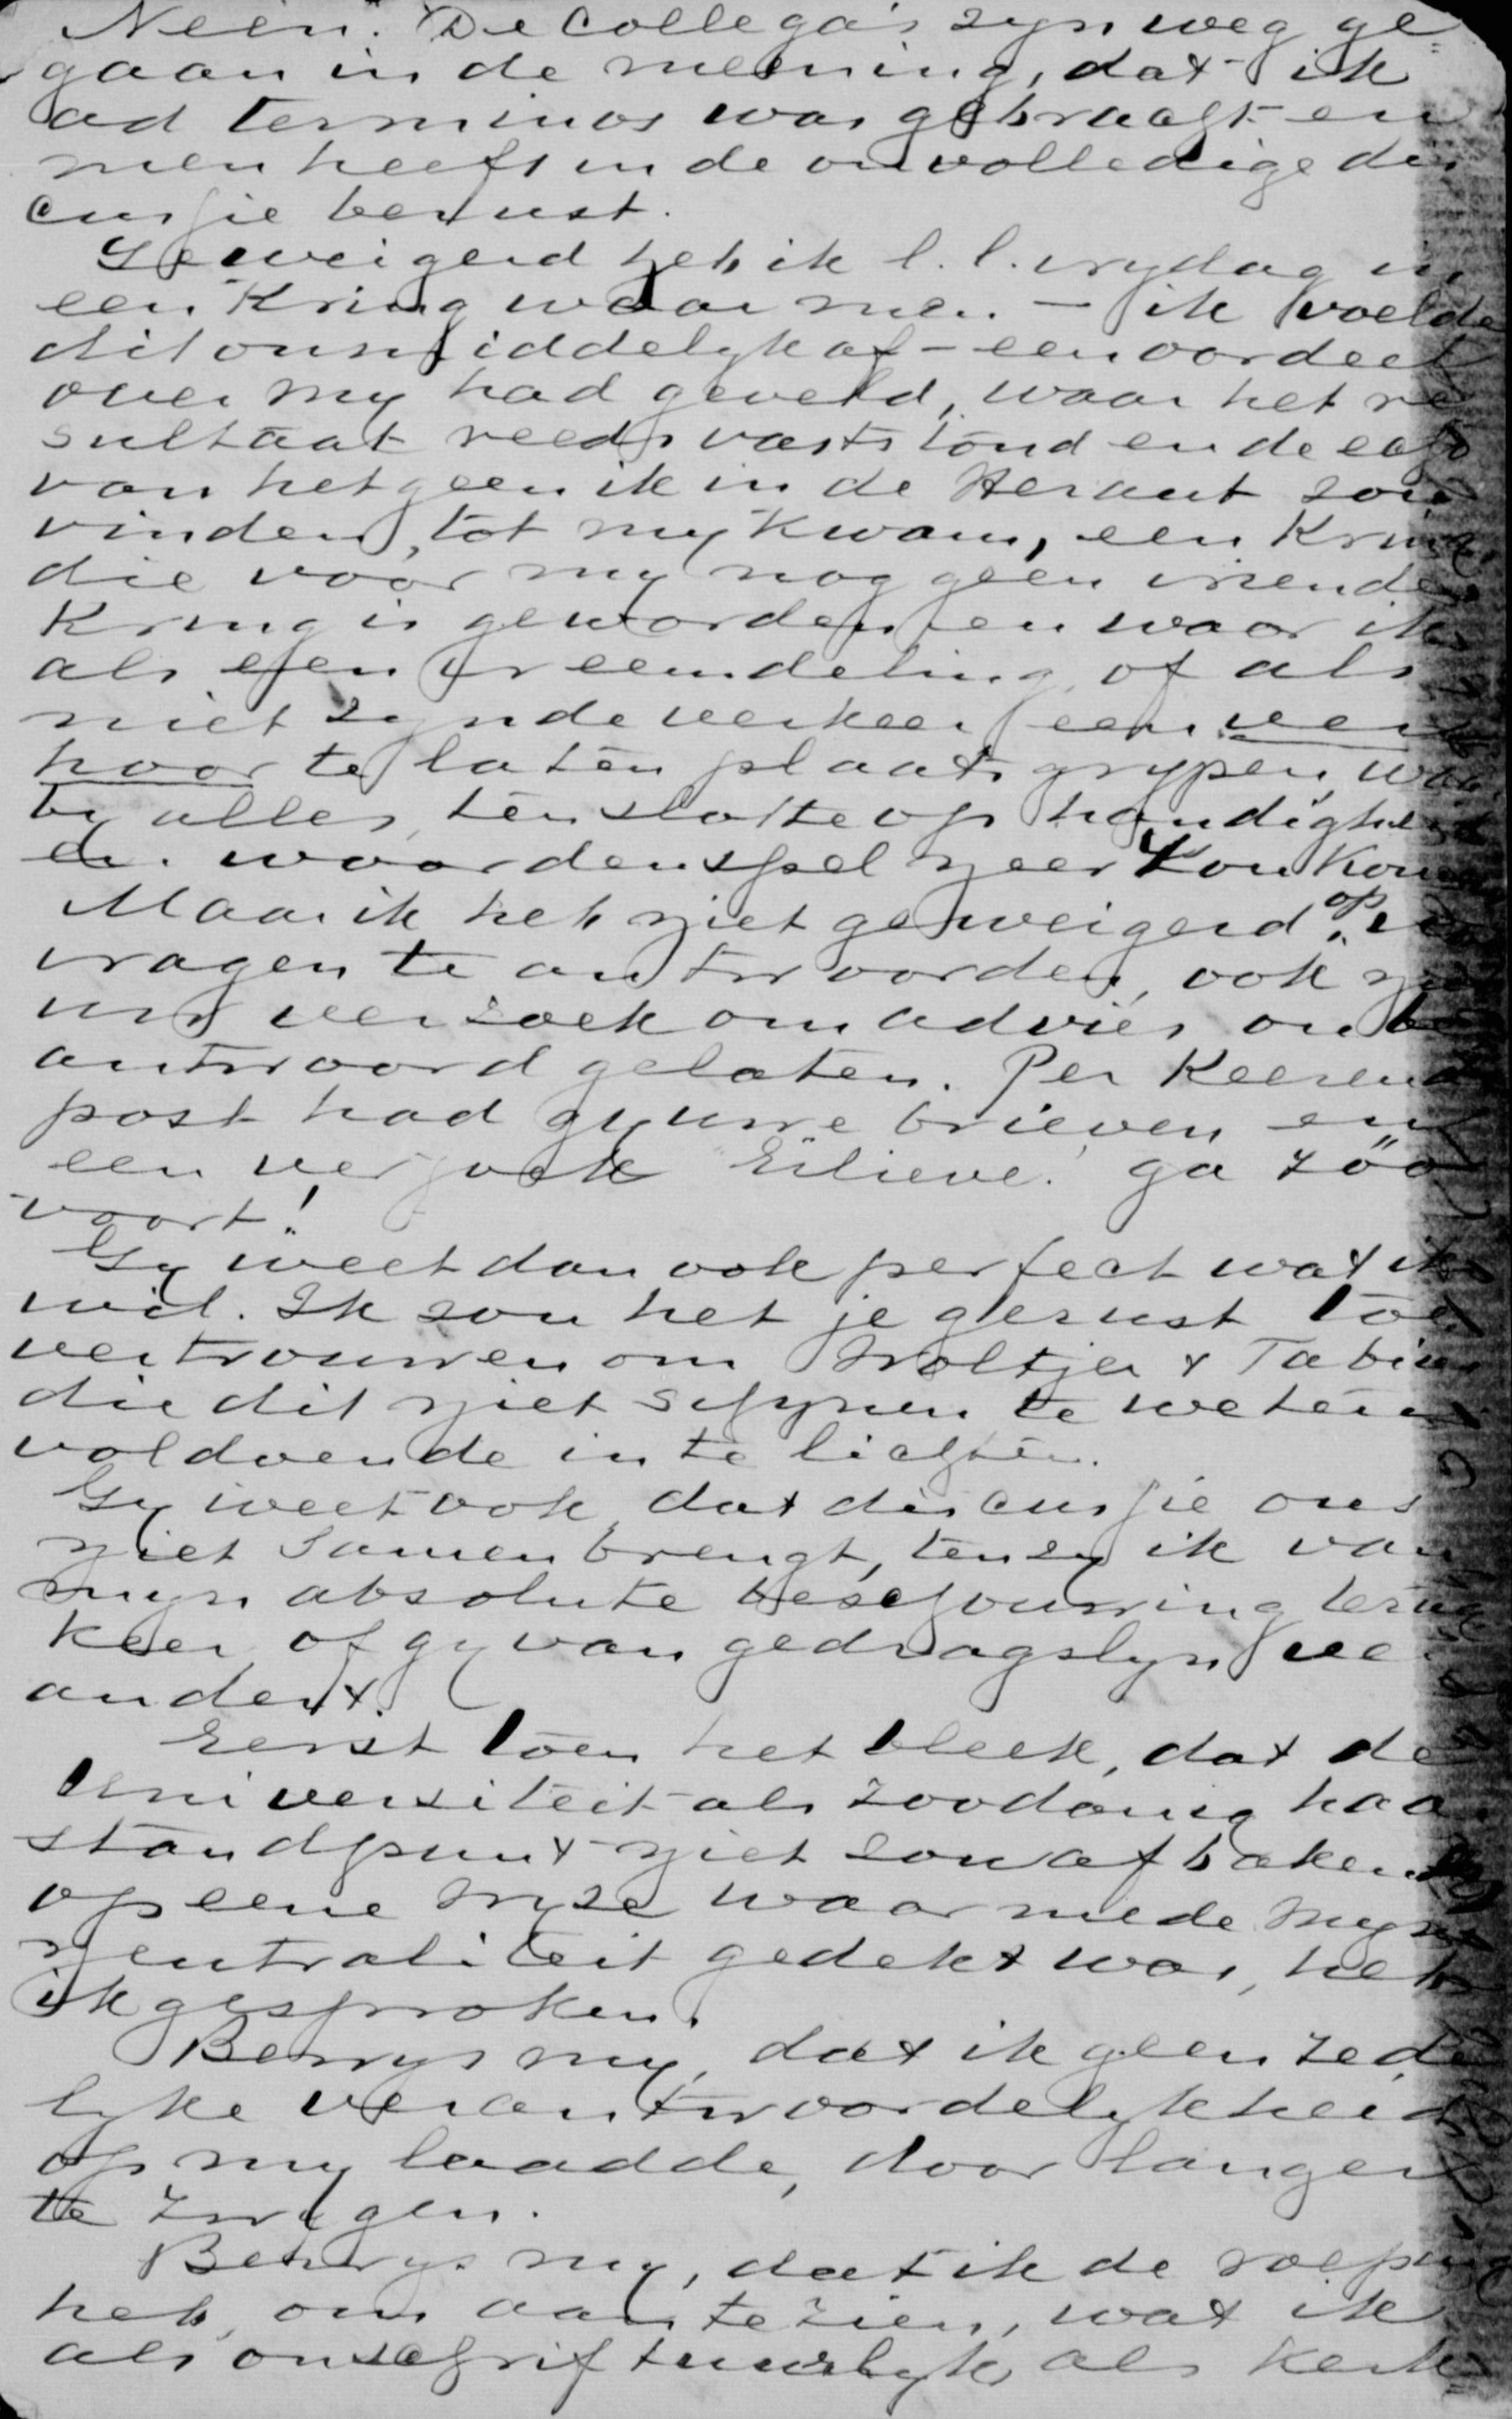 Neen. De collega's zyn weg ge
gaan in de meening, dat ik
ad terminos was gebracht en
men heeft in de onvolledige dis
cussie berust.
Geweigerd heb ik l.l. vrydag in
een Kring waar men – ik voelde
dit onmiddelyk af – een oordeel
over my had geveld, waar het re
sultaat reeds vaststond en de echo
van hetgeen ik in de Heraut zou
vinden, tot my kwam, een Kring,
die voor my nog geen vrienden
Kring is geworden en waar ik
als een vreemdeling of als
niet zynde verkeer een ver
hoor te laten plaats grypen, waar
by alles ten slotte op handigheid
en woordenspel neer kon komen
Maar ik heb niet geweigerd op uw
vragen te antwoorden, ook niet
uw verzoek om advies onbe
antwoord gelaten. Per Keerende
post had gy uwe brieven en
een verzoek "Eilieve! ga zóó
voort!"
Gy weet dan ook perfect wat ik
wil. Ik zou het je gerust toe
vertrouwen om Woltjer & Fabius
die dit niet schynen te weten
voldoende in te lichten.
Gy weet ook, dat discussie ons
niet samenbrengt, tenzy ik van
myn absolute beschouwing terug
keer of gy van gedragslyn ve
andert.
Eerst toen het bleek, dat de
Universiteit als zoodanig haar
standpunt niet zou afbakenen
op eene wyze waarmede myne
neutraliteit gedekt was, heb
ik gesproken.
Bewys my, dat ik geen zede
lyke verantwoordelykheid
op my laadde, door langer
te zwygen.
Bewys my, dat ik de roeping
heb, om aan te zien, wat ik
als onschriftuurlyk, als Kerk